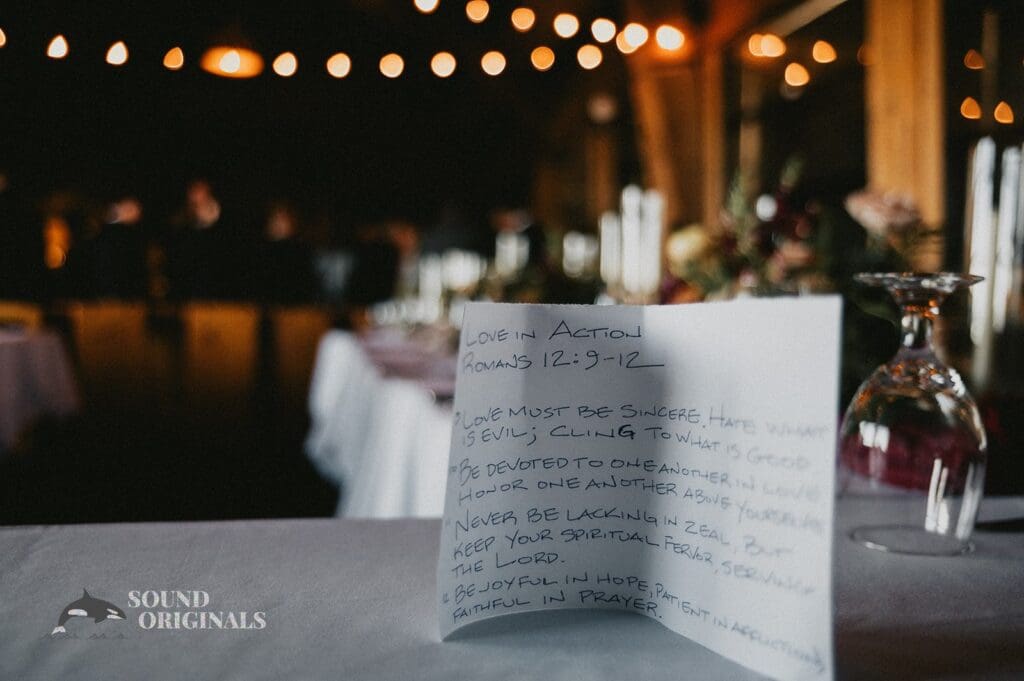 LOVE IN ACTION
ROMANS 12:9-12
9 LOVE MUST BE SINCERE. HATE WHAT
IS EVIL; CLING TO WHAT IS GOOD
10 BE DEVOTED TO ONE ANOTHER IN LOVE
HONOR ONE ANOTHER ABOVE YOURSELVES
11 NEVER BE LACKING IN ZEAL, BUT
KEEP YOUR SPIRITUAL FERVOR, SERVING
THE LORD.
12 BE JOYFUL IN HOPE, PATIENT IN AFFLICTION,
FAITHFUL IN PRAYER.
SOUND
ORIGINALS